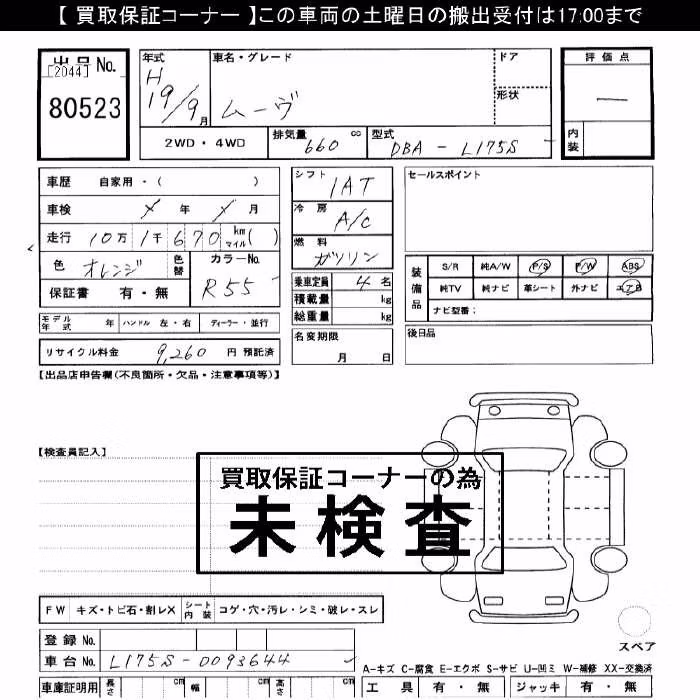 【 買取保証コーナー 】この車両の土曜日の搬出受付は17:00まで
出品No.
[2044]
80523
年式
H
19/9月
車名・グレード
ムーヴ
ドア
形状
評価点
―
内装
2WD・4WD
排気量 660 cc
型式 DBA - L175S
車歴 自家用・( )
車検 メ 年 メ 月
走行 10万1千670 km マイル( )
色 オレンジ 色替
カラーNo. R55
保証書 有・無
シフト 1AT
冷房 A/C
燃料 ガソリン
乗車定員 4名
積載量 kg
総重量 kg
セールスポイント
装備品
S/R 純A/W P/S P/W ABS
純TV 純ナビ 革シート 外ナビ エアB
ナビ型番:
モデル年式 年 ハンドル 左・右 ディーラー・並行
名変期限
月 日
後日品
リサイクル料金 9,260 円 預託済
【出品店申告欄(不良箇所・欠品・注意事項等)】
【検査員記入】
買取保証コーナーの為
未検査
FW キズ・トビ石・割レX シート内装 コゲ・穴・汚レ・シミ・破レ・スレ
スペア
登録No.
車台No. L175S-0093644
A-キズ C-腐食 E-エクボ S-サビ U-凹ミ W-補修 XX-交換済
車庫証明用 長さ cm 幅 cm 高さ cm
工具 有・無 ジャッキ 有・無